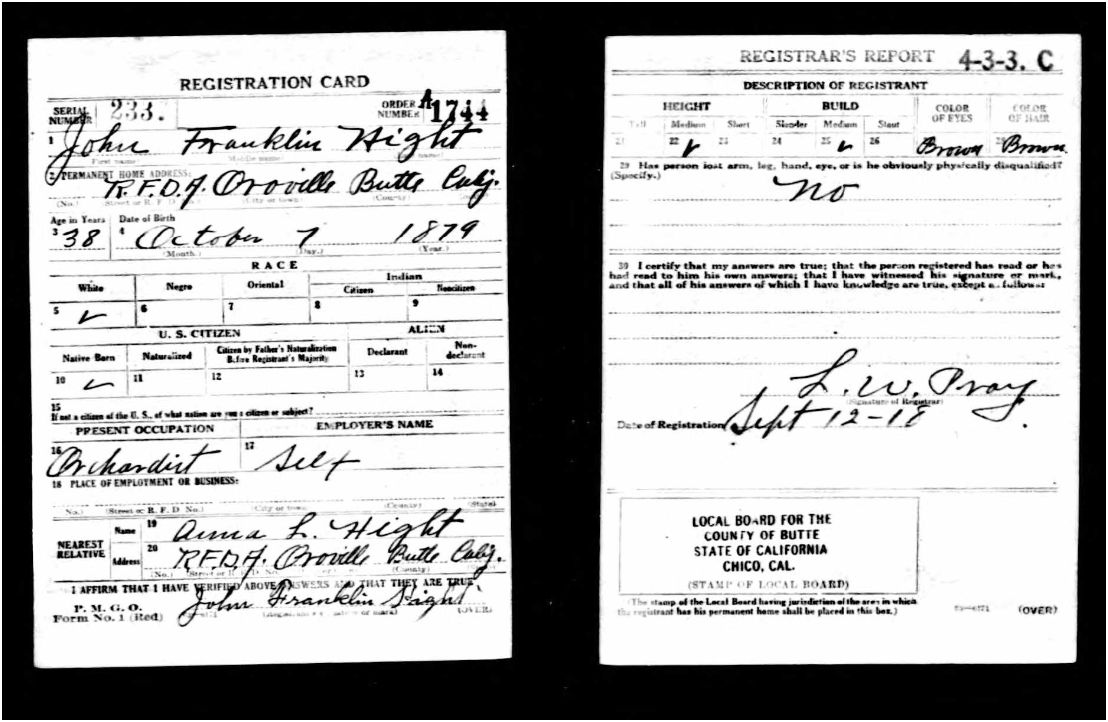 REGISTRATION CARD
SERIAL NUMBER 233. ORDER NUMBER A 1744
1 John Franklin Hight
First name Middle name name
2 PERMANENT HOME ADDRESS:
R.F.D.A. Oroville Butte Calif.
(No.) Street or R. F. D (City or town) (County)
Age in Years Date of Birth
3 38 4 October 7 1879
(Month.) (Day.) (Year.)
RACE
White Negro Oriental Indian
Citizen Noncitizen
5 ✓ 6 7 8 9
U. S. CITIZEN ALIEN
Native Born Naturalized Citizen by Father's Naturalization Before Registrant's Majority Declarant Non-declarant
10 ✓ 11 12 13 14
15
If not a citizen of the U. S., of what nation are you a citizen or subject?
PRESENT OCCUPATION EMPLOYER'S NAME
16 Orchardist 17 Self
18 PLACE OF EMPLOYMENT OR BUSINESS:
(No.) (Street or R. F. D No.) (City or town) (County) (State)
NEAREST RELATIVE
Name 19 Anna L. Hight
Address 20 R.F.D.A. Oroville Butte Calif.
(No.) (Street or R. F. D. No. (County)
I AFFIRM THAT I HAVE VERIFIED ABOVE ANSWERS AND THAT THEY ARE TRUE
P. M. G. O.
Form No. 1 (Red) John Franklin Hight (OVER)
REGISTRAR'S REPORT 4-3-3. C
DESCRIPTION OF REGISTRANT
HEIGHT BUILD COLOR OF EYES COLOR OF HAIR
Tall Medium Short Slender Medium Stout
21 22 ✓ 23 24 25 ✓ 26 Brown Brown
29 Has person lost arm, leg, hand, eye, or is he obviously physically disqualified?
(Specify.)
No
30 I certify that my answers are true; that the person registered has read or has
had read to him his own answers; that I have witnessed his signature or mark,
and that all of his answers of which I have knowledge are true, except as follows:
L. W. Pray
(Signature of Registrar)
Date of Registration Sept 12-18
LOCAL BOARD FOR THE
COUNTY OF BUTTE
STATE OF CALIFORNIA
CHICO, CAL.
(STAMP OF LOCAL BOARD)
(The stamp of the Local Board having jurisdiction of the area in which
the registrant has his permanent home shall be placed in this box.) (OVER)